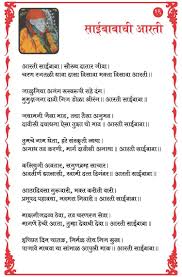 १६
साईबाबाची आरती
आरती साईबाबा। सौख्य दातार जीवा।
चरण रजतळी द्यावा दासा विसावा भक्ता विसावा आरती।।
जाळुनिया अनंग स्वस्वरूपी राहे दंग।
मुमुक्षुजनां दावी निज डोळा श्रीरंग।। आरती साईबाबा।।
जयामनी जैसा भाव, तया तैसा अनुभव।
दाविसी दयाघना ऐसा तुझा हा माव।। आरती साईबाबा।।
तुमचे नाम ध्याता, हरे संस्कृती व्यथा।
अगाध तव करणी, मार्ग दाविसी अनाथा।। आरती साईबाबा।।
कलियुगी अवतार, सगुणब्रम्ह साचार।
अवतीर्ण झालासी, स्वामी दत्त दिगंबर।। आरती साईबाबा।।
आठादिवसा गुरूवारी, भक्त करीती वारी।
प्रभुपद पहावया, भवभय निवारी।। आरती साईबाबा।।
माझानिजद्रव्य ठेवा, तव चरणरज सेवा।
मागणे हेची आता, तुम्हा देवाधिदेवा।। आरती साईबाबा।।
इच्छित दिन चातक, निर्मळ तोय निज सुख।
पाजावे माधवा या, सांभाळ आपुली भाक।। आरती साईबाबा।।